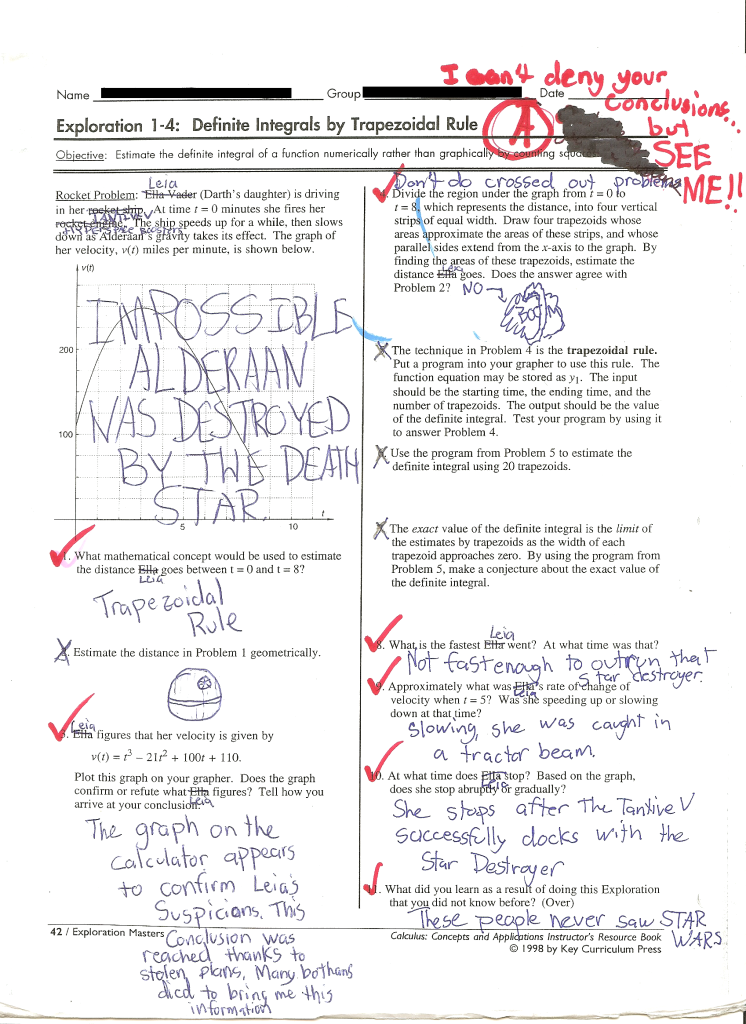 I can't deny your
conclusions...
but
SEE
ME!!
Name
Group
Date
Exploration 1-4: Definite Integrals by Trapezoidal Rule
A
Objective: Estimate the definite integral of a function numerically rather than graphically by counting squares.
Leia
Rocket Problem: Ella Vader (Darth's daughter) is driving
in her rocket ship. At time t = 0 minutes she fires her
TANTIVE V
rocket engine. The ship speeds up for a while, then slows
HYPERSPACE BOOSTERS
down as Alderaan's gravity takes its effect. The graph of
her velocity, v(t) miles per minute, is shown below.
v(t)
200
100
5
10
t
IMPOSSIBLE
ALDERAAN
WAS DESTROYED
BY THE DEATH
STAR
1. What mathematical concept would be used to estimate
the distance Ella goes between t = 0 and t = 8?
Leia
Trapezoidal
Rule
Estimate the distance in Problem 1 geometrically.
Leia
3. Ella figures that her velocity is given by
v(t) = t³ – 21t² + 100t + 110.
Plot this graph on your grapher. Does the graph
confirm or refute what Ella figures? Tell how you
arrive at your conclusion.
Leia
The graph on the
calculator appears
to confirm Leia's
Suspicions. This
Conclusion was
reached thanks to
stolen plans, Many bothans
died to bring me this
information
42 / Exploration Masters
Don't do crossed out problems
4. Divide the region under the graph from t = 0 to
t = 8, which represents the distance, into four vertical
strips of equal width. Draw four trapezoids whose
areas approximate the areas of these strips, and whose
parallel sides extend from the x-axis to the graph. By
finding the areas of these trapezoids, estimate the
Leia
distance Ella goes. Does the answer agree with
Problem 2?
NO
BOOM
The technique in Problem 4 is the trapezoidal rule.
Put a program into your grapher to use this rule. The
function equation may be stored as y₁. The input
should be the starting time, the ending time, and the
number of trapezoids. The output should be the value
of the definite integral. Test your program by using it
to answer Problem 4.
Use the program from Problem 5 to estimate the
definite integral using 20 trapezoids.
The exact value of the definite integral is the limit of
the estimates by trapezoids as the width of each
trapezoid approaches zero. By using the program from
Problem 5, make a conjecture about the exact value of
the definite integral.
Leia
8. What is the fastest Ella went? At what time was that?
Not fast enough to outrun that
star destroyer.
9. Approximately what was Ella's rate of change of
Leia
velocity when t = 5? Was she speeding up or slowing
down at that time?
Slowing, she was caught in
a tractor beam.
10. At what time does Ella stop? Based on the graph,
Leia
does she stop abruptly or gradually?
She stops after The Tantive V
successfully docks with the
Star Destroyer
11. What did you learn as a result of doing this Exploration
that you did not know before? (Over)
These people never saw STAR
WARS
Calculus: Concepts and Applications Instructor's Resource Book
© 1998 by Key Curriculum Press